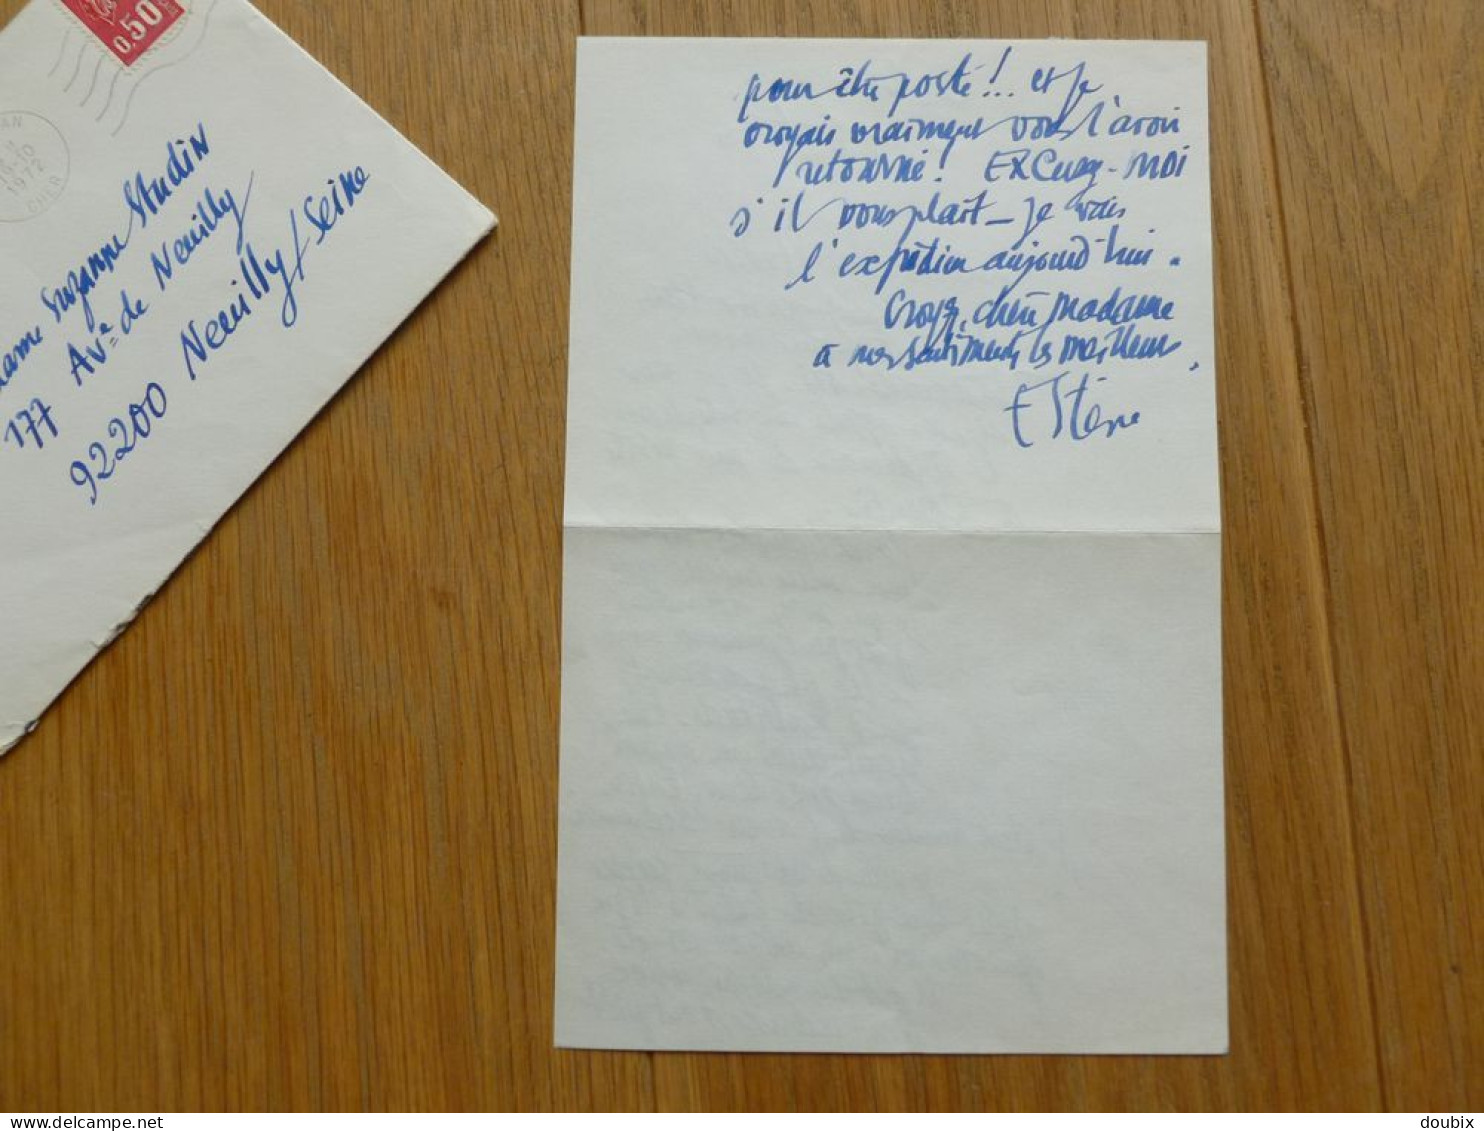 0.50
1972
CHER
Suzanne Studin
177 Av.e de Neuilly
92200 Neuilly/Seine
pour être posté!.. et je
croyais vraiment vous l'avoir
retourné! EXCusez-moi
s'il vous plait - je vais
l'expédier aujourd'hui.
Croyez, chère Madame
à mes sentiments les meilleurs,
delcampe.net
doubix